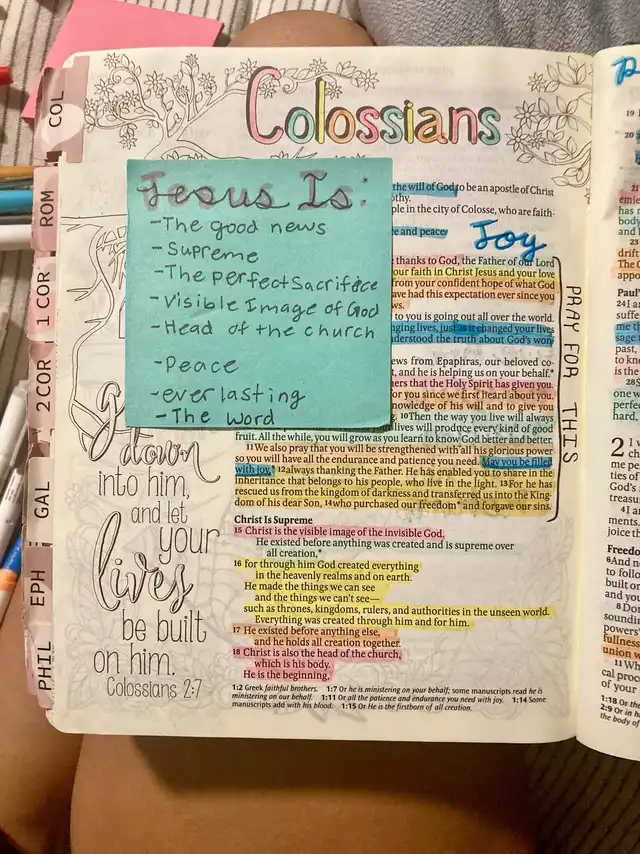 Colossians
COL
ROM
1 COR
2 COR
GAL
EPH
PHIL
Jesus Is:
-The good news
-Supreme
-The perfect Sacrifece
-Visible Image of God
-Head of the church
-Peace
-everlasting
-The Word
the will of God to be an apostle of Christ
ple in the city of Colosse, who are faith-
ce and peace
Joy
thanks to God, the Father of our Lord
your faith in Christ Jesus and your love
from your confident hope of what God
ave had this expectation ever since you
ws.
to you is going out all over the world.
nging lives, just as it changed your lives
understood the truth about God's won
ews from Epaphras, our beloved co-
, and he is helping us on your behalf.*
hers that the Holy Spirit has given you.
or you since we first heard about you.
nowledge of his will and to give you
10 Then the way you live will always
lives will produce every kind of good
fruit. All the while, you will grow as you learn to know God better and better.
11 We also pray that you will be strengthened with all his glorious power
so you will have all the endurance and patience you need. May you be filled
with joy,* 12 always thanking the Father. He has enabled you to share in the
inheritance that belongs to his people, who live in the light. 13 For he has
rescued us from the kingdom of darkness and transferred us into the King-
dom of his dear Son, 14 who purchased our freedom* and forgave our sins.
PRAY FOR THIS
Christ Is Supreme
15 Christ is the visible image of the invisible God.
He existed before anything was created and is supreme over
all creation,*
16 for through him God created everything
in the heavenly realms and on earth.
He made the things we can see
and the things we can't see—
such as thrones, kingdoms, rulers, and authorities in the unseen world.
Everything was created through him and for him.
17 He existed before anything else,
and he holds all creation together.
18 Christ is also the head of the church,
which is his body.
He is the beginning,
1:2 Greek faithful brothers. 1:7 Or he is ministering on your behalf; some manuscripts read he is
ministering on our behalf. 1:11 Or all the patience and endurance you need with joy. 1:14 Some
manuscripts add with his blood. 1:15 Or He is the firstborn of all creation.
down
into him,
and let
your
lives
be built
on him.
Colossians 2:7